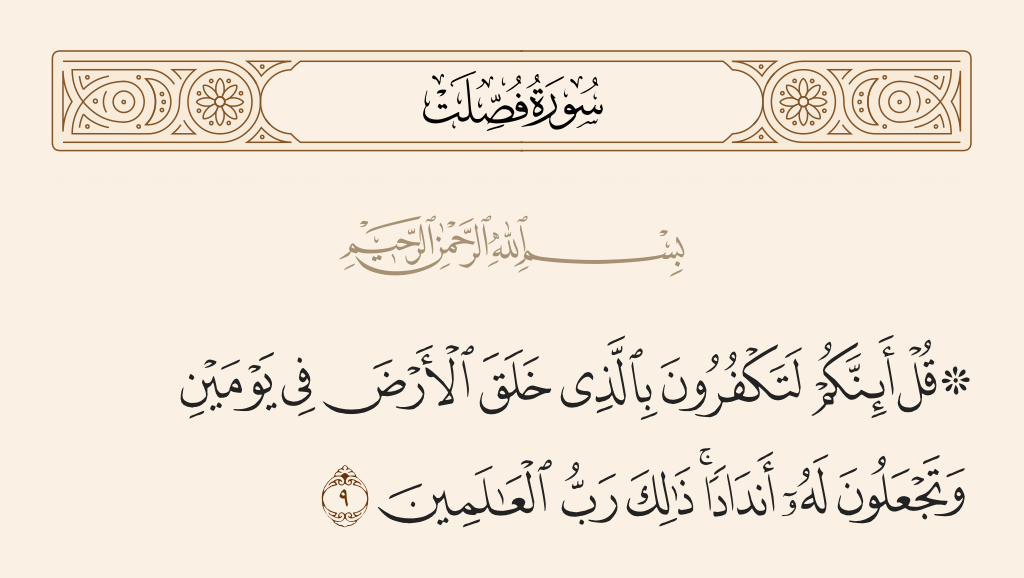 سُورَةُ فُصِّلَتْ
بِسْمِ ٱللَّهِ ٱلرَّحْمَٰنِ ٱلرَّحِيمِ
۞ قُلْ أَئِنَّكُمْ لَتَكْفُرُونَ بِٱلَّذِى خَلَقَ ٱلْأَرْضَ فِى يَوْمَيْنِ
وَتَجْعَلُونَ لَهُۥٓ أَندَادًا ۚ ذَٰلِكَ رَبُّ ٱلْعَٰلَمِينَ ٩